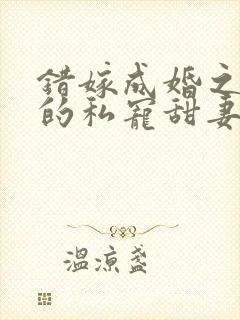 错嫁成婚之
的私宠甜妻
温凉盏